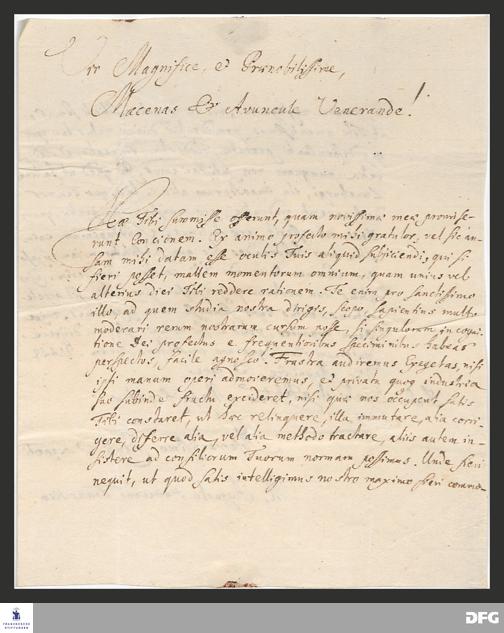 Vir Magnifice, & Prænobilissime,
Mæcenas & Avuncule Venerande!
Hæ Tibi summisse offerunt, quam novissimæ meæ promise-
runt Concionem. Ex animo profecto mihi gratulor, vel sic an-
sam mihi datam esse oculis Tuis aliquid subjiciendi, qui si
fieri posset, mallem momentorum omnium, quam unius vel
alterius diei Tibi reddere rationem. Te enim pro sanctissimo
illo, ad quem studia nostra dirigis, scopo sapientius multo
moderari rerum nostrarum cursum posse, si singulorum in cogni-
tione Dei profectus e frequentioribus
perspectos, facile agnosco. Frustra audiremus Exegetas, nisi
ipsi manum operi admoveremus, & privata quoq industria
suo subinde fructu excideret, nisi quæ nos occupent satis
Tibi constaret, ut hæc relinquere, illa immutare, alia corri-
gere, differre alia, vel alia methodo tractare, aliis autem in-
sistere ad consiliorum Tuorum normam possimus. Unde fieri
nequit, ut quod satis intelligimus nostro maximo fieri commo-
FRANCKESCHE
STIFTUNGEN
DFG